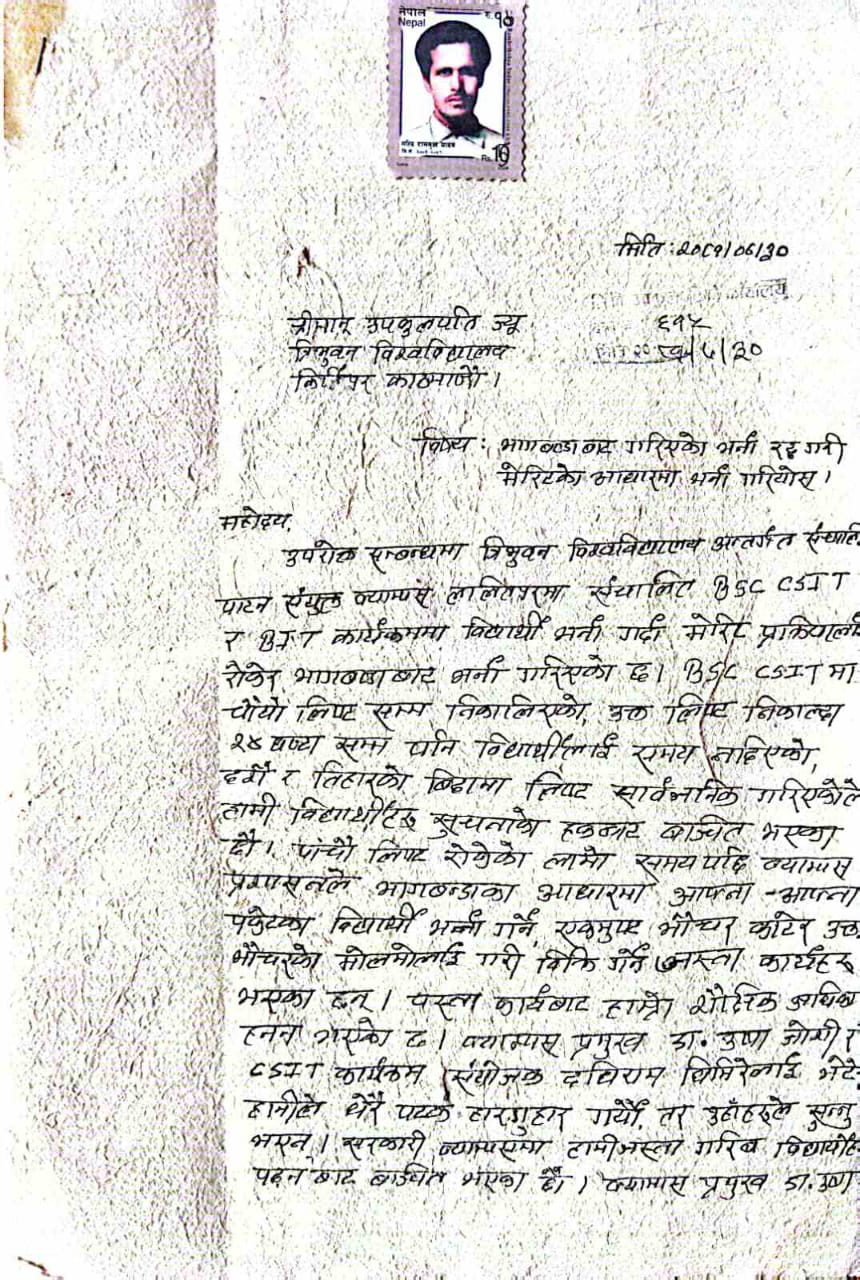 नेपाल
Nepal
रु. १०
शहिद रामवृक्ष यादव
Rs. 10
मिति : २०८१/०८/३०
श्रीमान् उपकुलपति ज्यू
६१५
त्रिभुवन विश्वविद्यालय
किर्तिपुर काठमाडौं ।
विषय : भागबण्डाबाट गरिएको भर्ना रद्द गरी
मेरिटका आधारमा भर्ना गरियोस् ।
महोदय,
उपरोक्त सम्बन्धमा त्रिभुवन विश्वविद्यालय अन्तर्गत
पाटन संयुक्त क्याम्पस ललितपुरमा संचालित BSC CSIT
र BIT कार्यक्रममा विद्यार्थी भर्ना गर्दा मेरिट प्रक्रियालाई
रोकेर भागबण्डाबाट भर्ना गरिएको छ। BSC CSIT मा
चौंथो लिष्ट सम्म निकालिएको, उक्त लिष्ट निकाल्दा
२४ घण्टा सम्म पनि विद्यार्थीलाई समय नदिएको,
दशैं र तिहारको बिदामा लिष्ट सार्वजनिक गरिएकोले
हामी विद्यार्थीहरू सूचनाको हकबाट बाञ्चित भएका
छौं। पांचौ लिष्ट रोकेको लामो समय पछि क्याम्पस
प्रशासनले भागबण्डाका आधारमा आफ्ना -आफ्ना
पकेटका विद्यार्थी भर्ना गर्ने, एकमुष्ट भौचर काटेर उक्त
भौचरको मोलमोलाई गरी बिक्रि गर्ने जस्ता कार्यहरू
भएका छन् । यस्ता कार्यबाट हाम्रो शैक्षिक
हनन भएको छ । क्याम्पस प्रमुख डा. उषा जोशी र
CSIT कार्यक्रम संयोजक दधिराम घिमिरेलाई भेटेर
हामीले धेरै पटक हारगुहार गर्यौं, तर उहाँहरूले सुन्नु
भएन् । सरकारी क्याम्पसमा हामीजस्ता गरिब
पढ्न बाट बाञ्चित भएका छौं । क्याम्पस प्रमुख डा. उषा